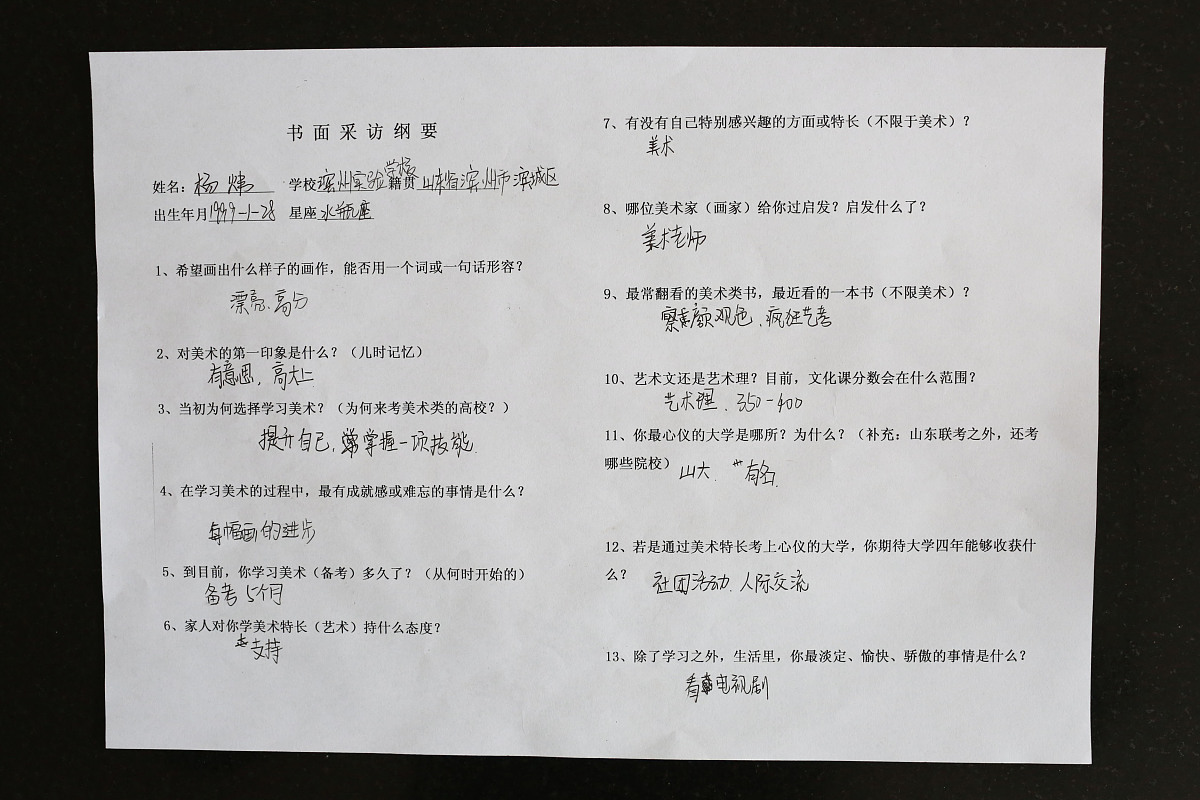 书面采访纲要
姓名：杨炜 学校滨州实验学校 籍贯山东省滨州市滨城区
出生年月1999-1-28 星座水瓶座
1、希望画出什么样子的画作，能否用一个词或一句话形容？
漂亮、高分
2、对美术的第一印象是什么？（儿时记忆）
有意思，高大上
3、当初为何选择学习美术？（为何来考美术类的高校？）
提升自己，掌握一项技能.
4、在学习美术的过程中，最有成就感或难忘的事情是什么？
每幅画的进步
5、到目前，你学习美术（备考）多久了？（从何时开始的）
备考5个月
6、家人对你学美术特长（艺术）持什么态度？
支持
7、有没有自己特别感兴趣的方面或特长（不限于美术）？
美术
8、哪位美术家（画家）给你过启发？启发什么了？
美术老师
9、最常翻看的美术类书，最近看的一本书（不限美术）？
察言观色、疯狂艺考
10、艺术文还是艺术理？目前，文化课分数会在什么范围？
艺术理、350-400
11、你最心仪的大学是哪所？为什么？（补充：山东联考之外，还考
哪些院校）
山大、有名.
12、若是通过美术特长考上心仪的大学，你期待大学四年能够收获什
么？
社团活动、人际交流
13、除了学习之外，生活里，你最淡定、愉快、骄傲的事情是什么？
看电视剧